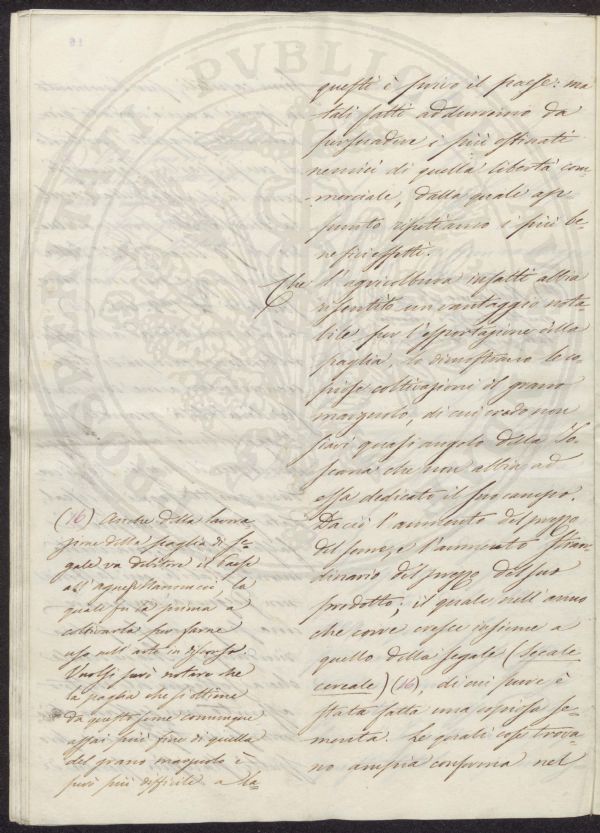 questi è sicuro il paese: ma
tali fatti adduciamo da
persuadere i più ostinati
nemici di quella libertà com
-merciale, dalla quale ap
punto risultiamo i più be-
nefici effetti.
Che l'agricoltura infatti abbia
risentito un vantaggio nota-
bile per l'esportazione della
paglia, lo dimostrano le co
piose coltivazioni di grano
marzuolo, di cui credo non
siavi quasi angolo della To-
scana che non abbia ad
essa dedicato il suo campo.
Da ciò l'aumento del prezzo
del seme, e l'aumento straor
dinario del prezzo del suo
prodotto; il quale nell'anno
che corre cresce insieme a
quello della segale (Secale
cereale) (16) di cui pure è
stata fatta una copiosa se-
menta. Le quali cose trova-
no ampia conferma nel
(16) Anche della lavora
zione della paglia di se-
gale va debitore il Paese
all' Mannucci, la
quale fu la prima a
coltivarla per farne
uso nell'arte in discorso.
Vuolsi però notare che
la paglia che si ottiene
da questo seme comunque
assai più fine di quella
del grano marzuolo è
però più difficile a la=
PROSPERITATI PVBLICAE
16